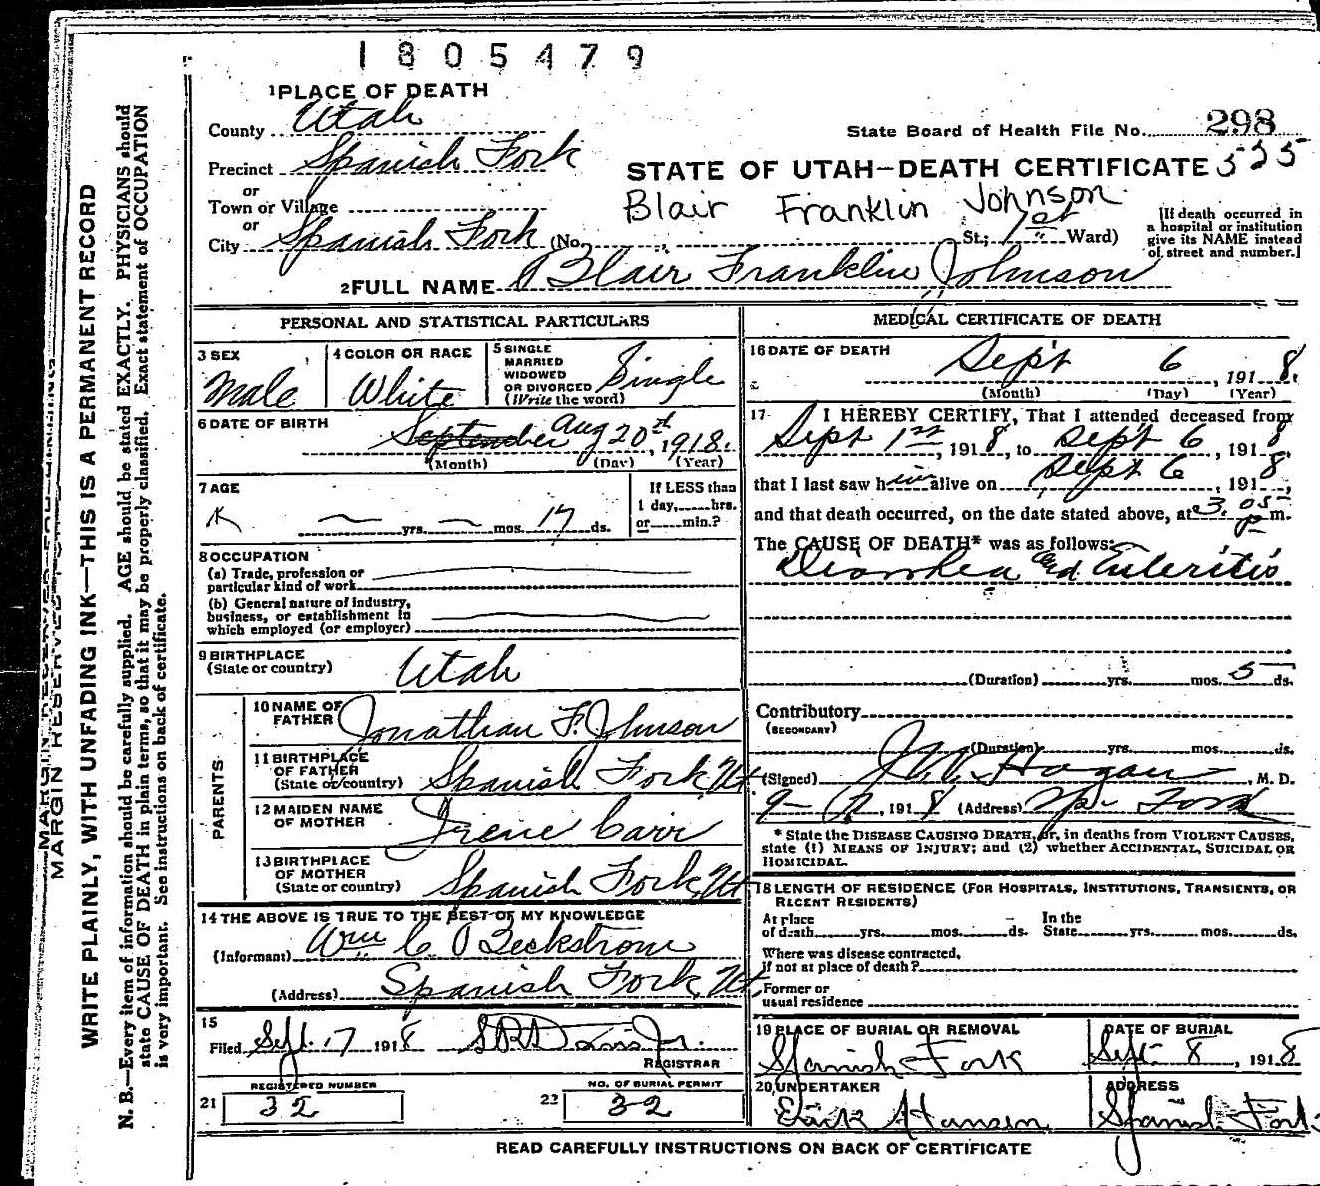 1805479
1 PLACE OF DEATH
County Utah
State Board of Health File No. 298
Precinct Spanish Fork
STATE OF UTAH—DEATH CERTIFICATE 535
or
Town or Village
Blair Franklin Johnson
or
City Spanish Fork (No. St.; 1st Ward)
[If death occurred in
a hospital or institution
give its NAME instead
of street and number.]
2 FULL NAME Blair Franklin Johnson
PERSONAL AND STATISTICAL PARTICULARS
3 SEX
Male
4 COLOR OR RACE
White
5 SINGLE
MARRIED
WIDOWED
OR DIVORCED
(Write the word) Single
6 DATE OF BIRTH
September Aug 20th, 1918.
(Month) (Day) (Year)
7 AGE
yrs. mos. 17 ds.
If LESS than
1 day, hrs.
or min.?
8 OCCUPATION
(a) Trade, profession or
particular kind of work
(b) General nature of industry,
business, or establishment in
which employed (or employer)
9 BIRTHPLACE
(State or country) Utah
PARENTS
10 NAME OF
FATHER Jonathan F. Johnson
11 BIRTHPLACE
OF FATHER
(State or country) Spanish Fork Ut
12 MAIDEN NAME
OF MOTHER Irene Carr
13 BIRTHPLACE
OF MOTHER
(State or country) Spanish Fork, Ut
14 THE ABOVE IS TRUE TO THE BEST OF MY KNOWLEDGE
(Informant) Wm C. O Beckstrom
(Address) Spanish Fork, Ut
15
Filed Sept. 17 1918 Davis Jr.
REGISTRAR
REGISTERED NUMBER
21 32
NO. OF BURIAL PERMIT
22 32
MEDICAL CERTIFICATE OF DEATH
16 DATE OF DEATH
Sept 6, 1918.
(Month) (Day) (Year)
17 I HEREBY CERTIFY, That I attended deceased from
Sept 1st, 1918, to Sept 6, 1918
that I last saw him alive on Sept 6, 1918,
and that death occurred, on the date stated above, at 3.05 p m.
The CAUSE OF DEATH* was as follows:
Diarrhea and Enteritis
(Duration) yrs. mos. 5 ds.
Contributory
(SECONDARY)
(Duration) yrs. mos. ds.
(Signed) J. W. Hagan, M. D.
9- , 1918 (Address) Sp. Fork
* State the DISEASE CAUSING DEATH, or, in deaths from VIOLENT CAUSES,
state (1) MEANS OF INJURY; and (2) whether ACCIDENTAL, SUICIDAL OR
HOMICIDAL.
18 LENGTH OF RESIDENCE (FOR HOSPITALS, INSTITUTIONS, TRANSIENTS, OR
RECENT RESIDENTS)
At place
of death yrs. mos. ds.
In the
State yrs. mos. ds.
Where was disease contracted,
if not at place of death?
Former or
usual residence
19 PLACE OF BURIAL OR REMOVAL
Spanish Fork
DATE OF BURIAL
Sept. 8, 1918
20 UNDERTAKER
Erick Hansen
ADDRESS
Spanish Fork
READ CAREFULLY INSTRUCTIONS ON BACK OF CERTIFICATE
MARGIN RESERVED FOR BINDING
WRITE PLAINLY, WITH UNFADING INK—THIS IS A PERMANENT RECORD
N. B.—Every item of information should be carefully supplied. AGE should be stated EXACTLY. PHYSICIANS should
state CAUSE OF DEATH in plain terms, so that it may be properly classified. Exact statement of OCCUPATION
is very important. See instructions on back of certificate.